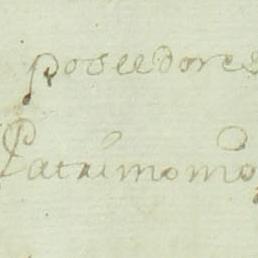 poseedores
Patrimonio